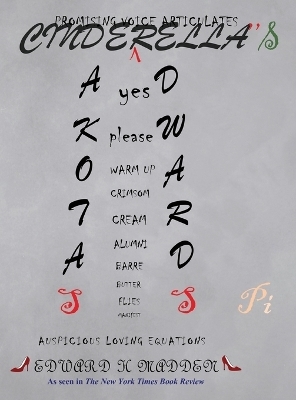 PROMISING VOICE ARTICULATES
CINDERELLA"S
A yes D
K please W
WARM UP
O CRIMSOM A
CREAM
T ALUMNI R
A BARRE D
BUTTER
S FLIES S Pi
AUSPICIOUS LOVING EQUATIONS
EDWARD H MADDEN
As seen in The New York Times Book Review